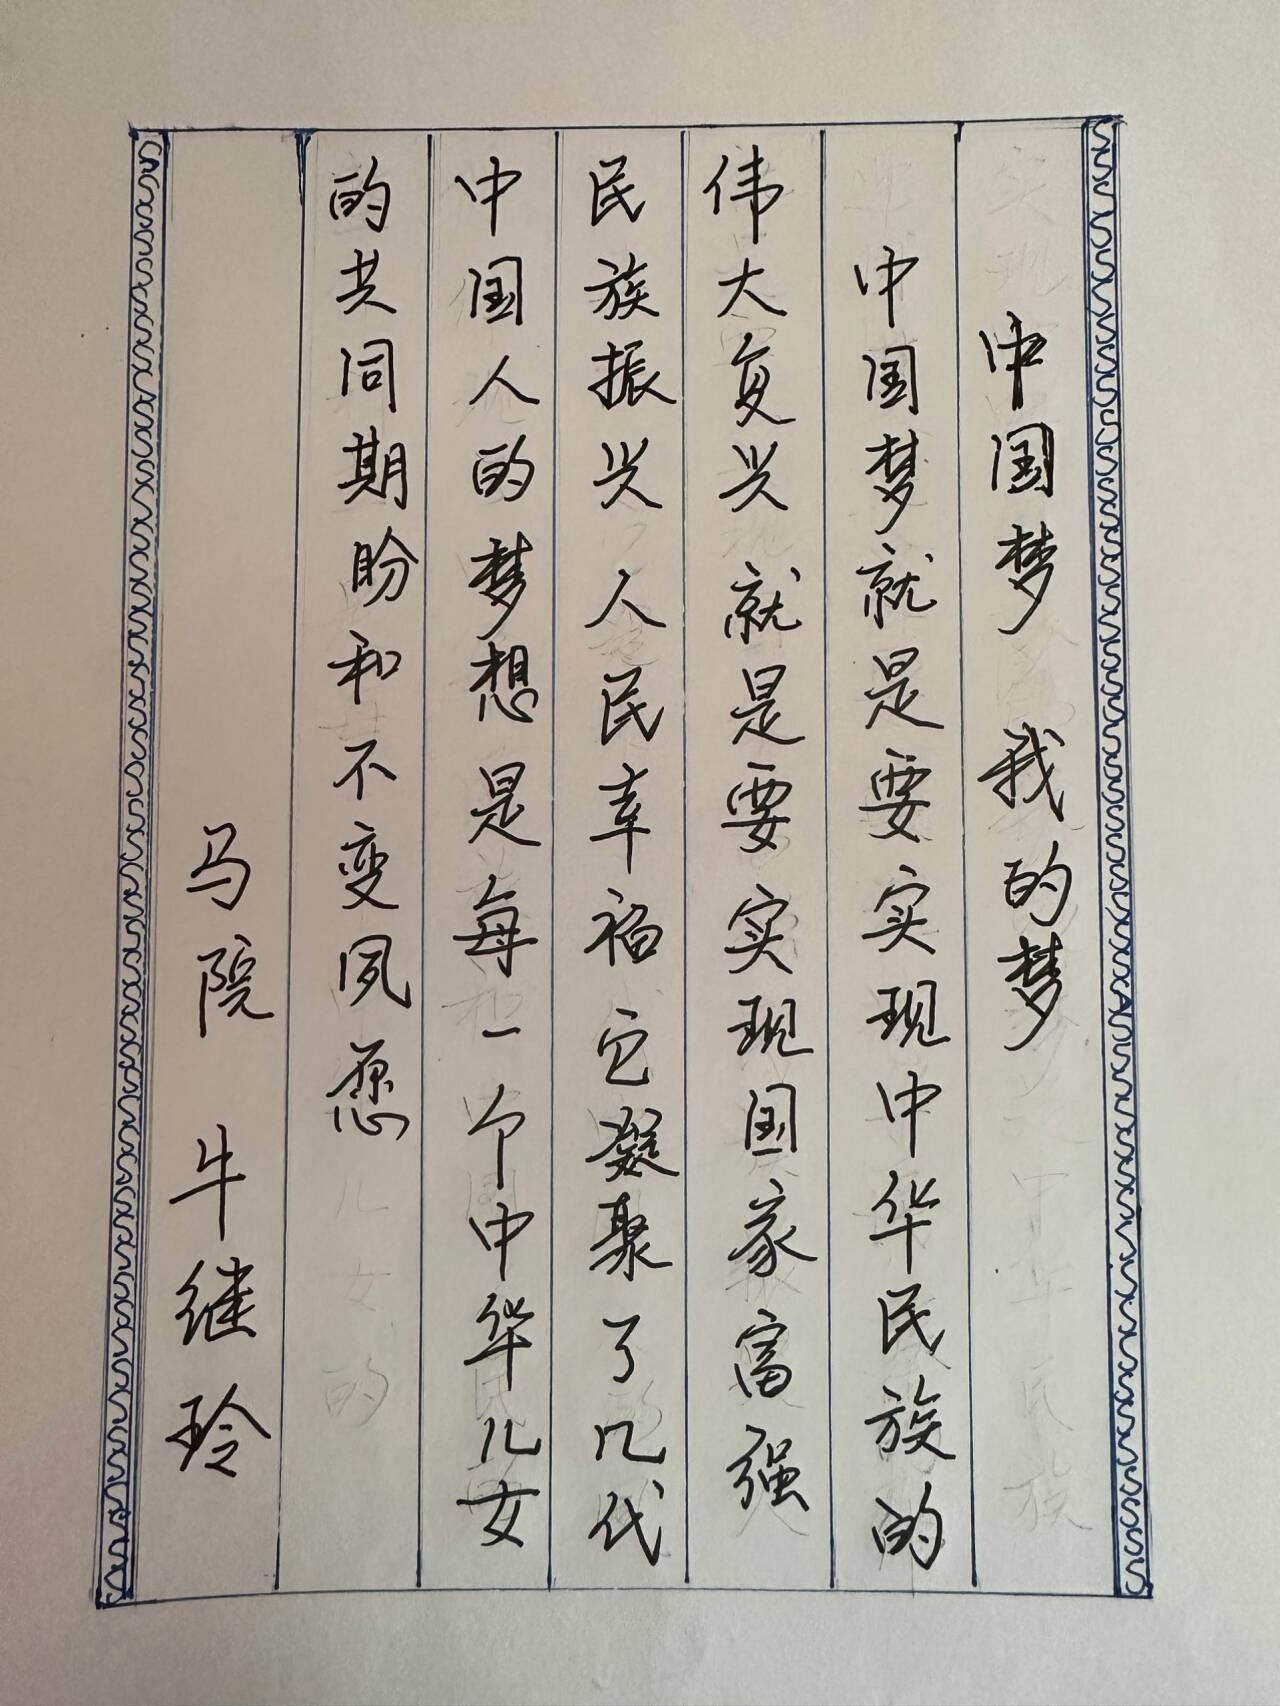 中国梦 我的梦
中国梦就是要实现中华民族的
伟大复兴 就是要实现国家富强
民族振兴 人民幸福 它凝聚了几代
中国人的梦想 是每一个中华儿女
的共同期盼和不变夙愿
马院 牛继玲